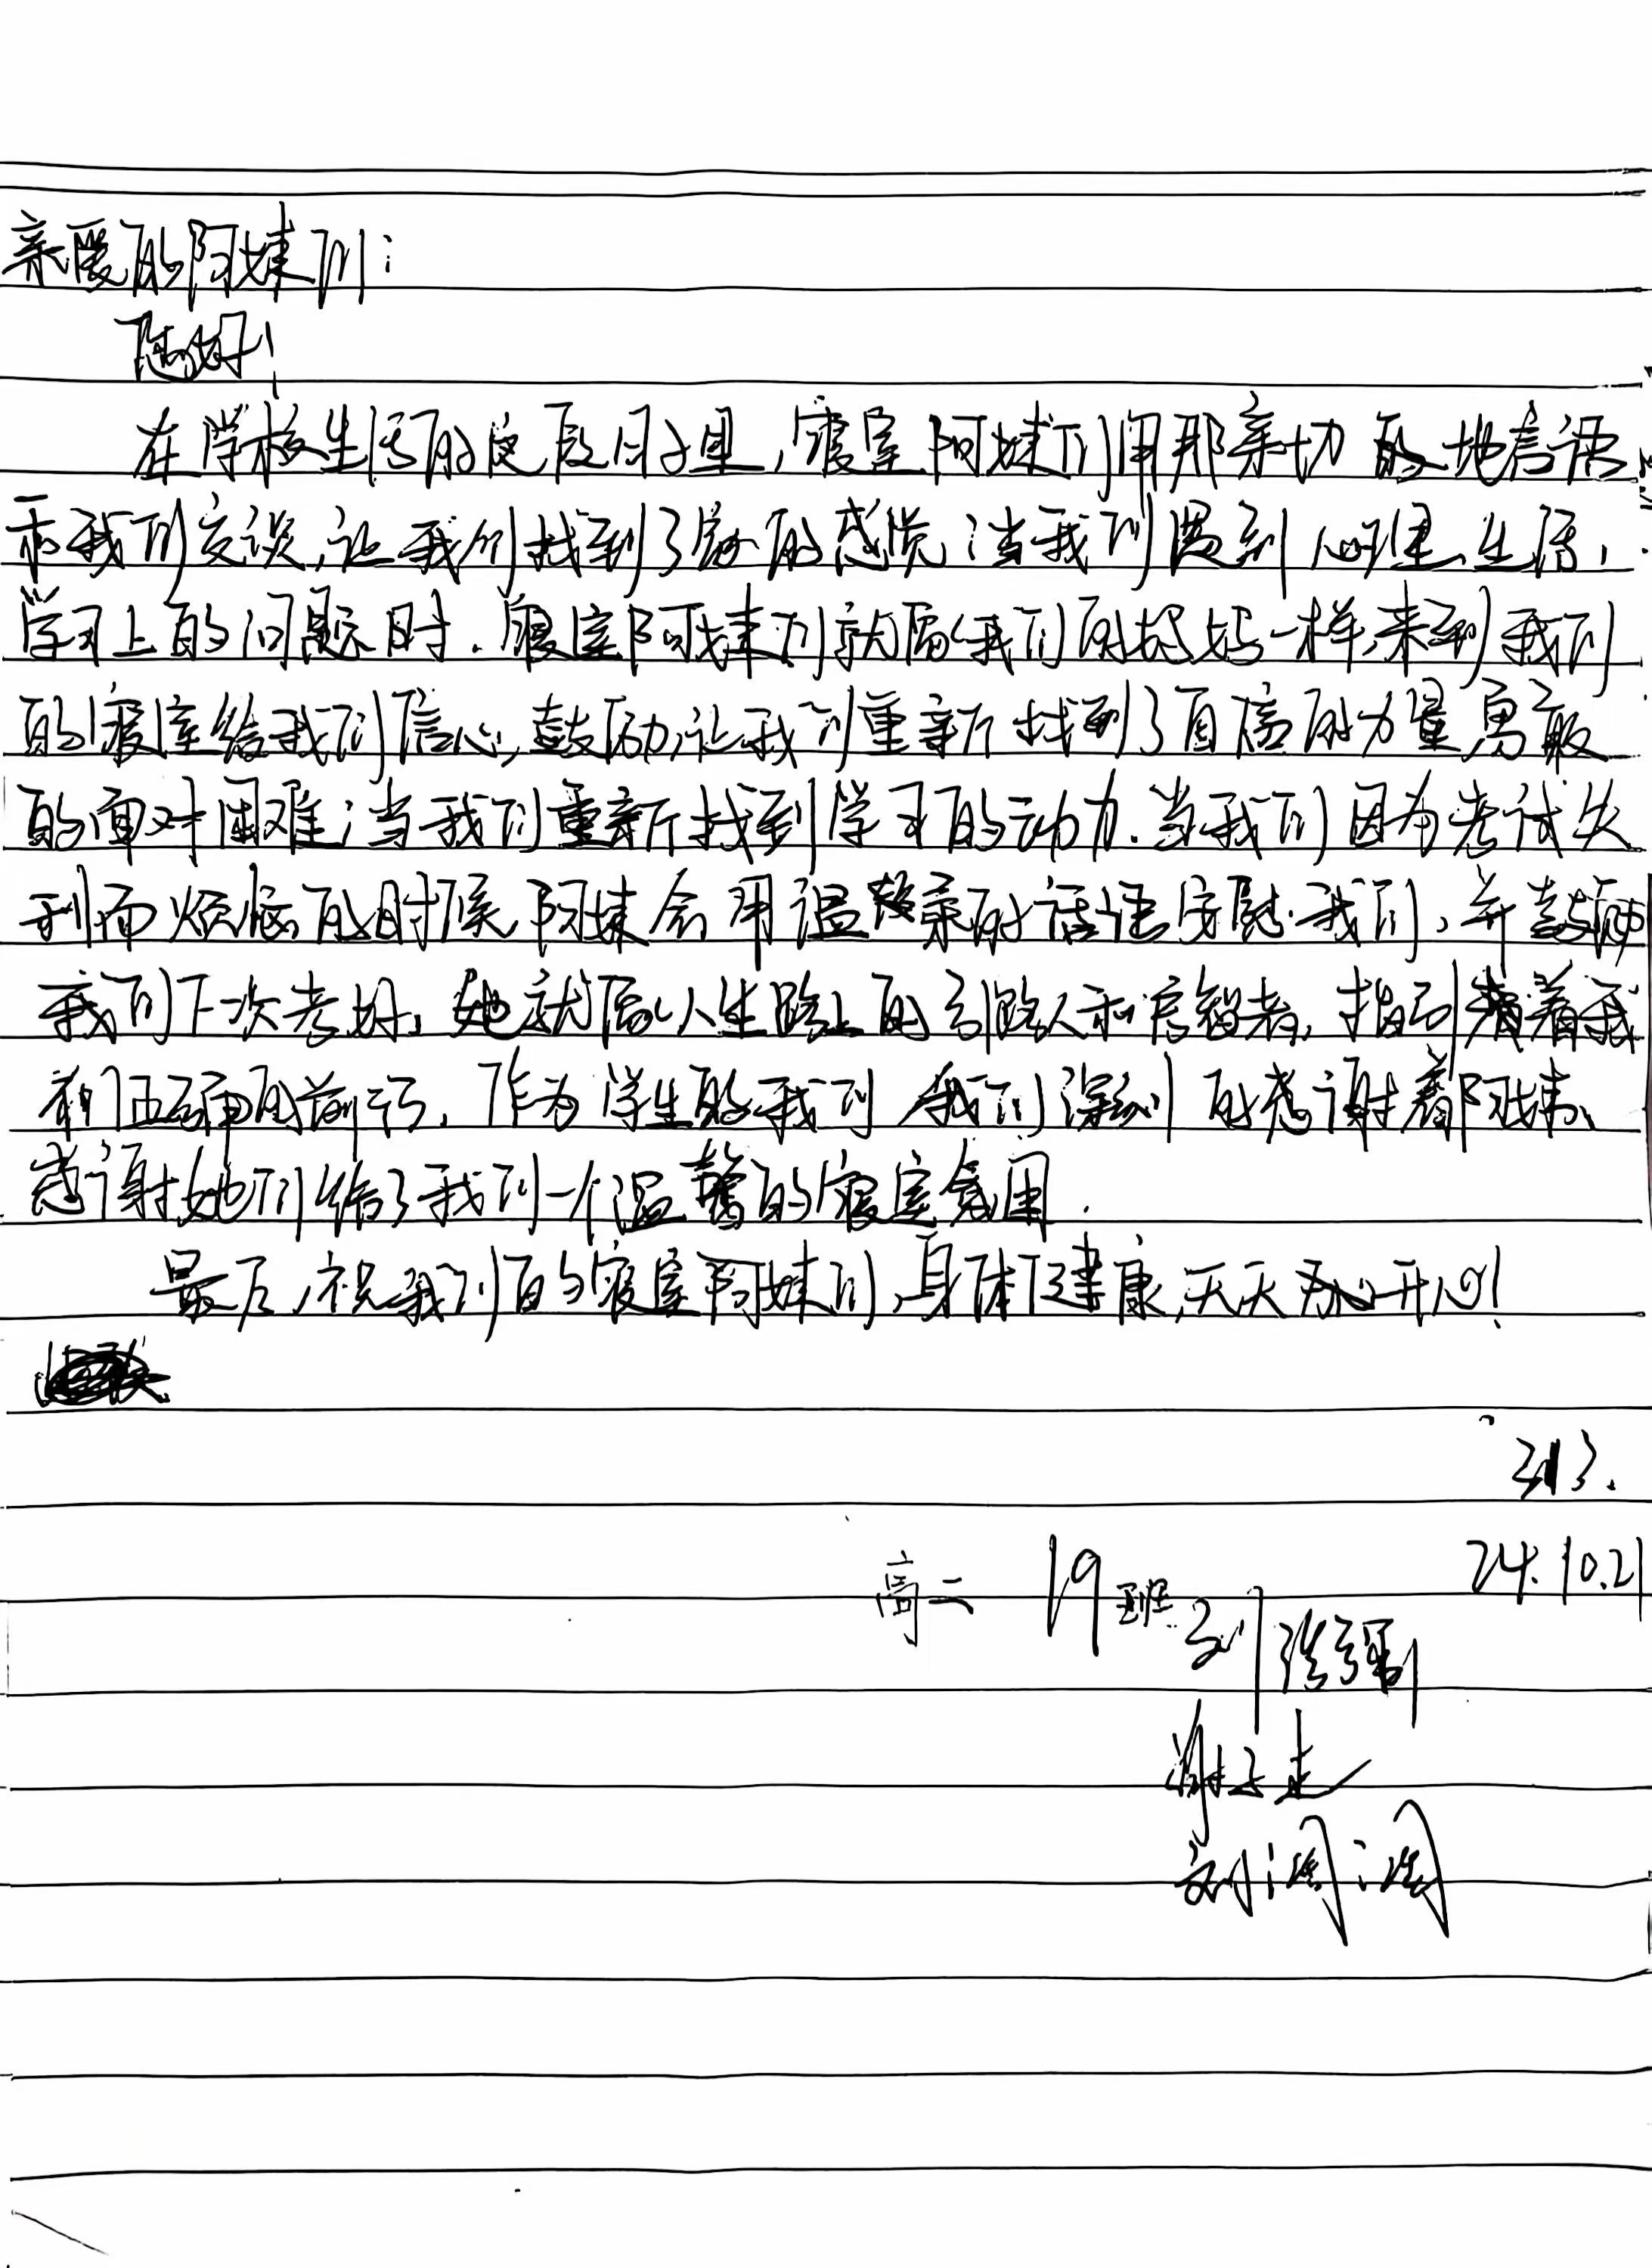 亲爱的阿姨们：
您好！
在学校生活的这段日子里，寝室阿姨们用那亲切的地言语
和我们交谈，让我们找到了家的感觉；当我们遇到心理、生活、
学习上的问题时，寝室阿姨们就像我们的妈妈一样，来到我们
的寝室给我们信心，鼓励，让我们重新找到了自信的力量勇敢
的面对困难；当我们重新找到学习的动力．当我们因为考试失
利而烦恼的时候，阿姨会用温柔的话语安慰我们，并鼓励
我们下次考好，她就像人生路上的引路人和启智者，指引着我
们正确的前行，作为学生的我们 我们深刻的感谢着阿姨，
感谢她们给了我们一个温馨的寝室氛围．
最后，祝我们的寝室阿姨们，身体健康，天天开心！
313.
24.10.21
高二 19班 刘洪强
谢子
刘润润